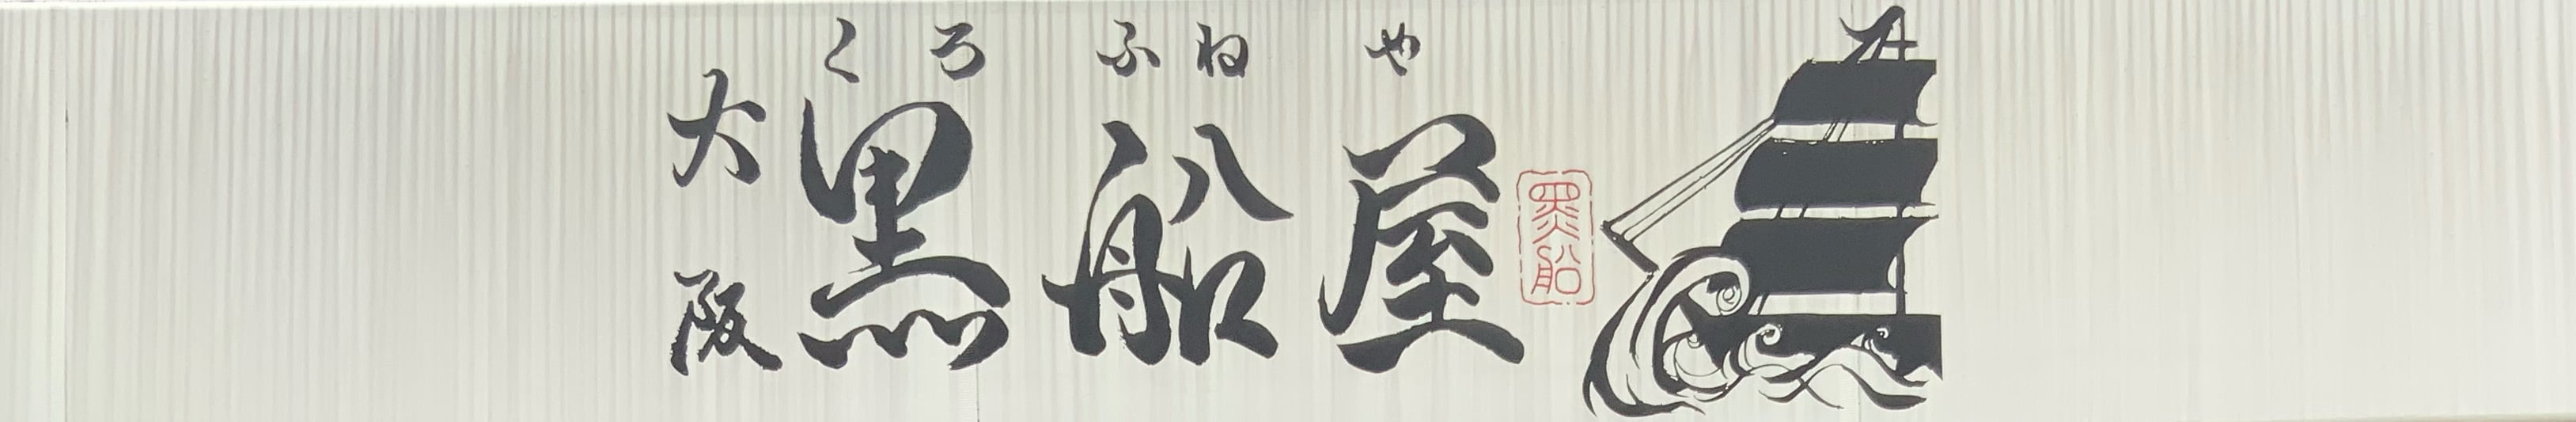 くろふねや
大阪
黒船屋
黒船